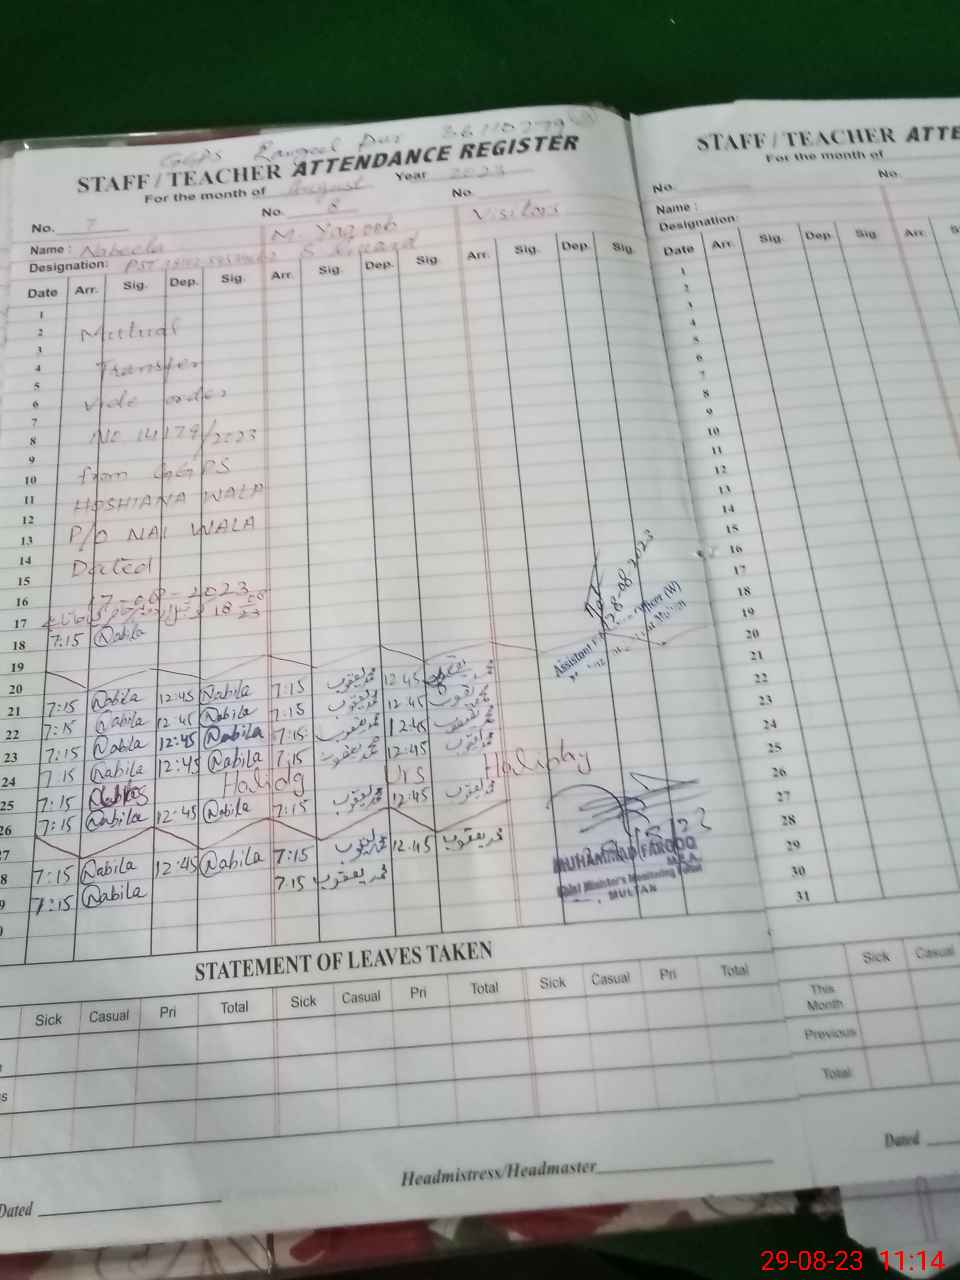 GGPS Rangeel Pur 36110779
STAFF / TEACHER ATTENDANCE REGISTER
For the month of August Year 2023
No. 7 No. 8 No.
Name : Nabeela M. Yaqoob Visitors
Designation: PST
Date Arr. Sig. Dep. Sig. Arr. Sig. Dep. Sig. Arr. Sig. Dep. Sig.
1
2 Mutual
3
4 Transfer
5
6 vide order
7
8 No 14179/2023
9
10 from GGPS
11 HOSHIANA WALA
12
13 P/O NAI WALA
14
15 Dated
16 17-08-2023
17
18 7:15 Nabila
19
20
21 7:15 Nabila 12:45 Nabila 7:15 محمد یعقوب 12:45
22 7:15 Nabila 12:45 Nabila 7:15 محمد یعقوب 12:45 محمد یعقوب
23 7:15 Nabila 12:45 Nabila 7:15 محمد یعقوب 12:45 محمد یعقوب
24 7:15 Nabila 12:45 Nabila 7:15 محمد یعقوب 12:45 محمد یعقوب
25 7:15 Holiday Urs Holiday
26 7:15 Nabila 12:45 Nabila 7:15 محمد یعقوب 12:45 محمد یعقوب
7
8 7:15 Nabila 12:45 Nabila 7:15 محمد یعقوب 12:45 محمد یعقوب
9 7:15 Nabila 7:15 محمد یعقوب
28-08-2023
Assistant Officer (W)
MUHAMMAD FAROOQ
M.E.A
Chief Minister's Monitoring Force
MULTAN
STATEMENT OF LEAVES TAKEN
Sick Casual Pri Total Sick Casual Pri Total Sick Casual Pri Total
Headmistress/Headmaster
Dated
STAFF / TEACHER ATTE
For the month of
No. No.
Name :
Designation:
Date Arr. Sig. Dep. Sig. Arr. S
1
2
3
4
5
6
7
8
9
10
11
12
13
14
15
16
17
18
19
20
21
22
23
24
25
26
27
28
29
30
31
Sick Casual
This
Month
Previous
Total
Dated
29-08-23 11:14